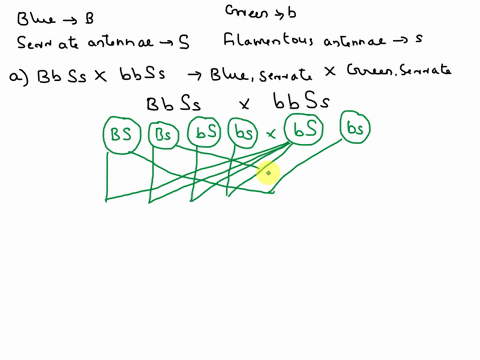 Blue → B Green → b
Serrate antennae → S Filamentous antennae → s
a) BbSs × bbSs → Blue, serrate × Green, Serrate
BbSs × bbSs
BS Bs bS bs × bS bs